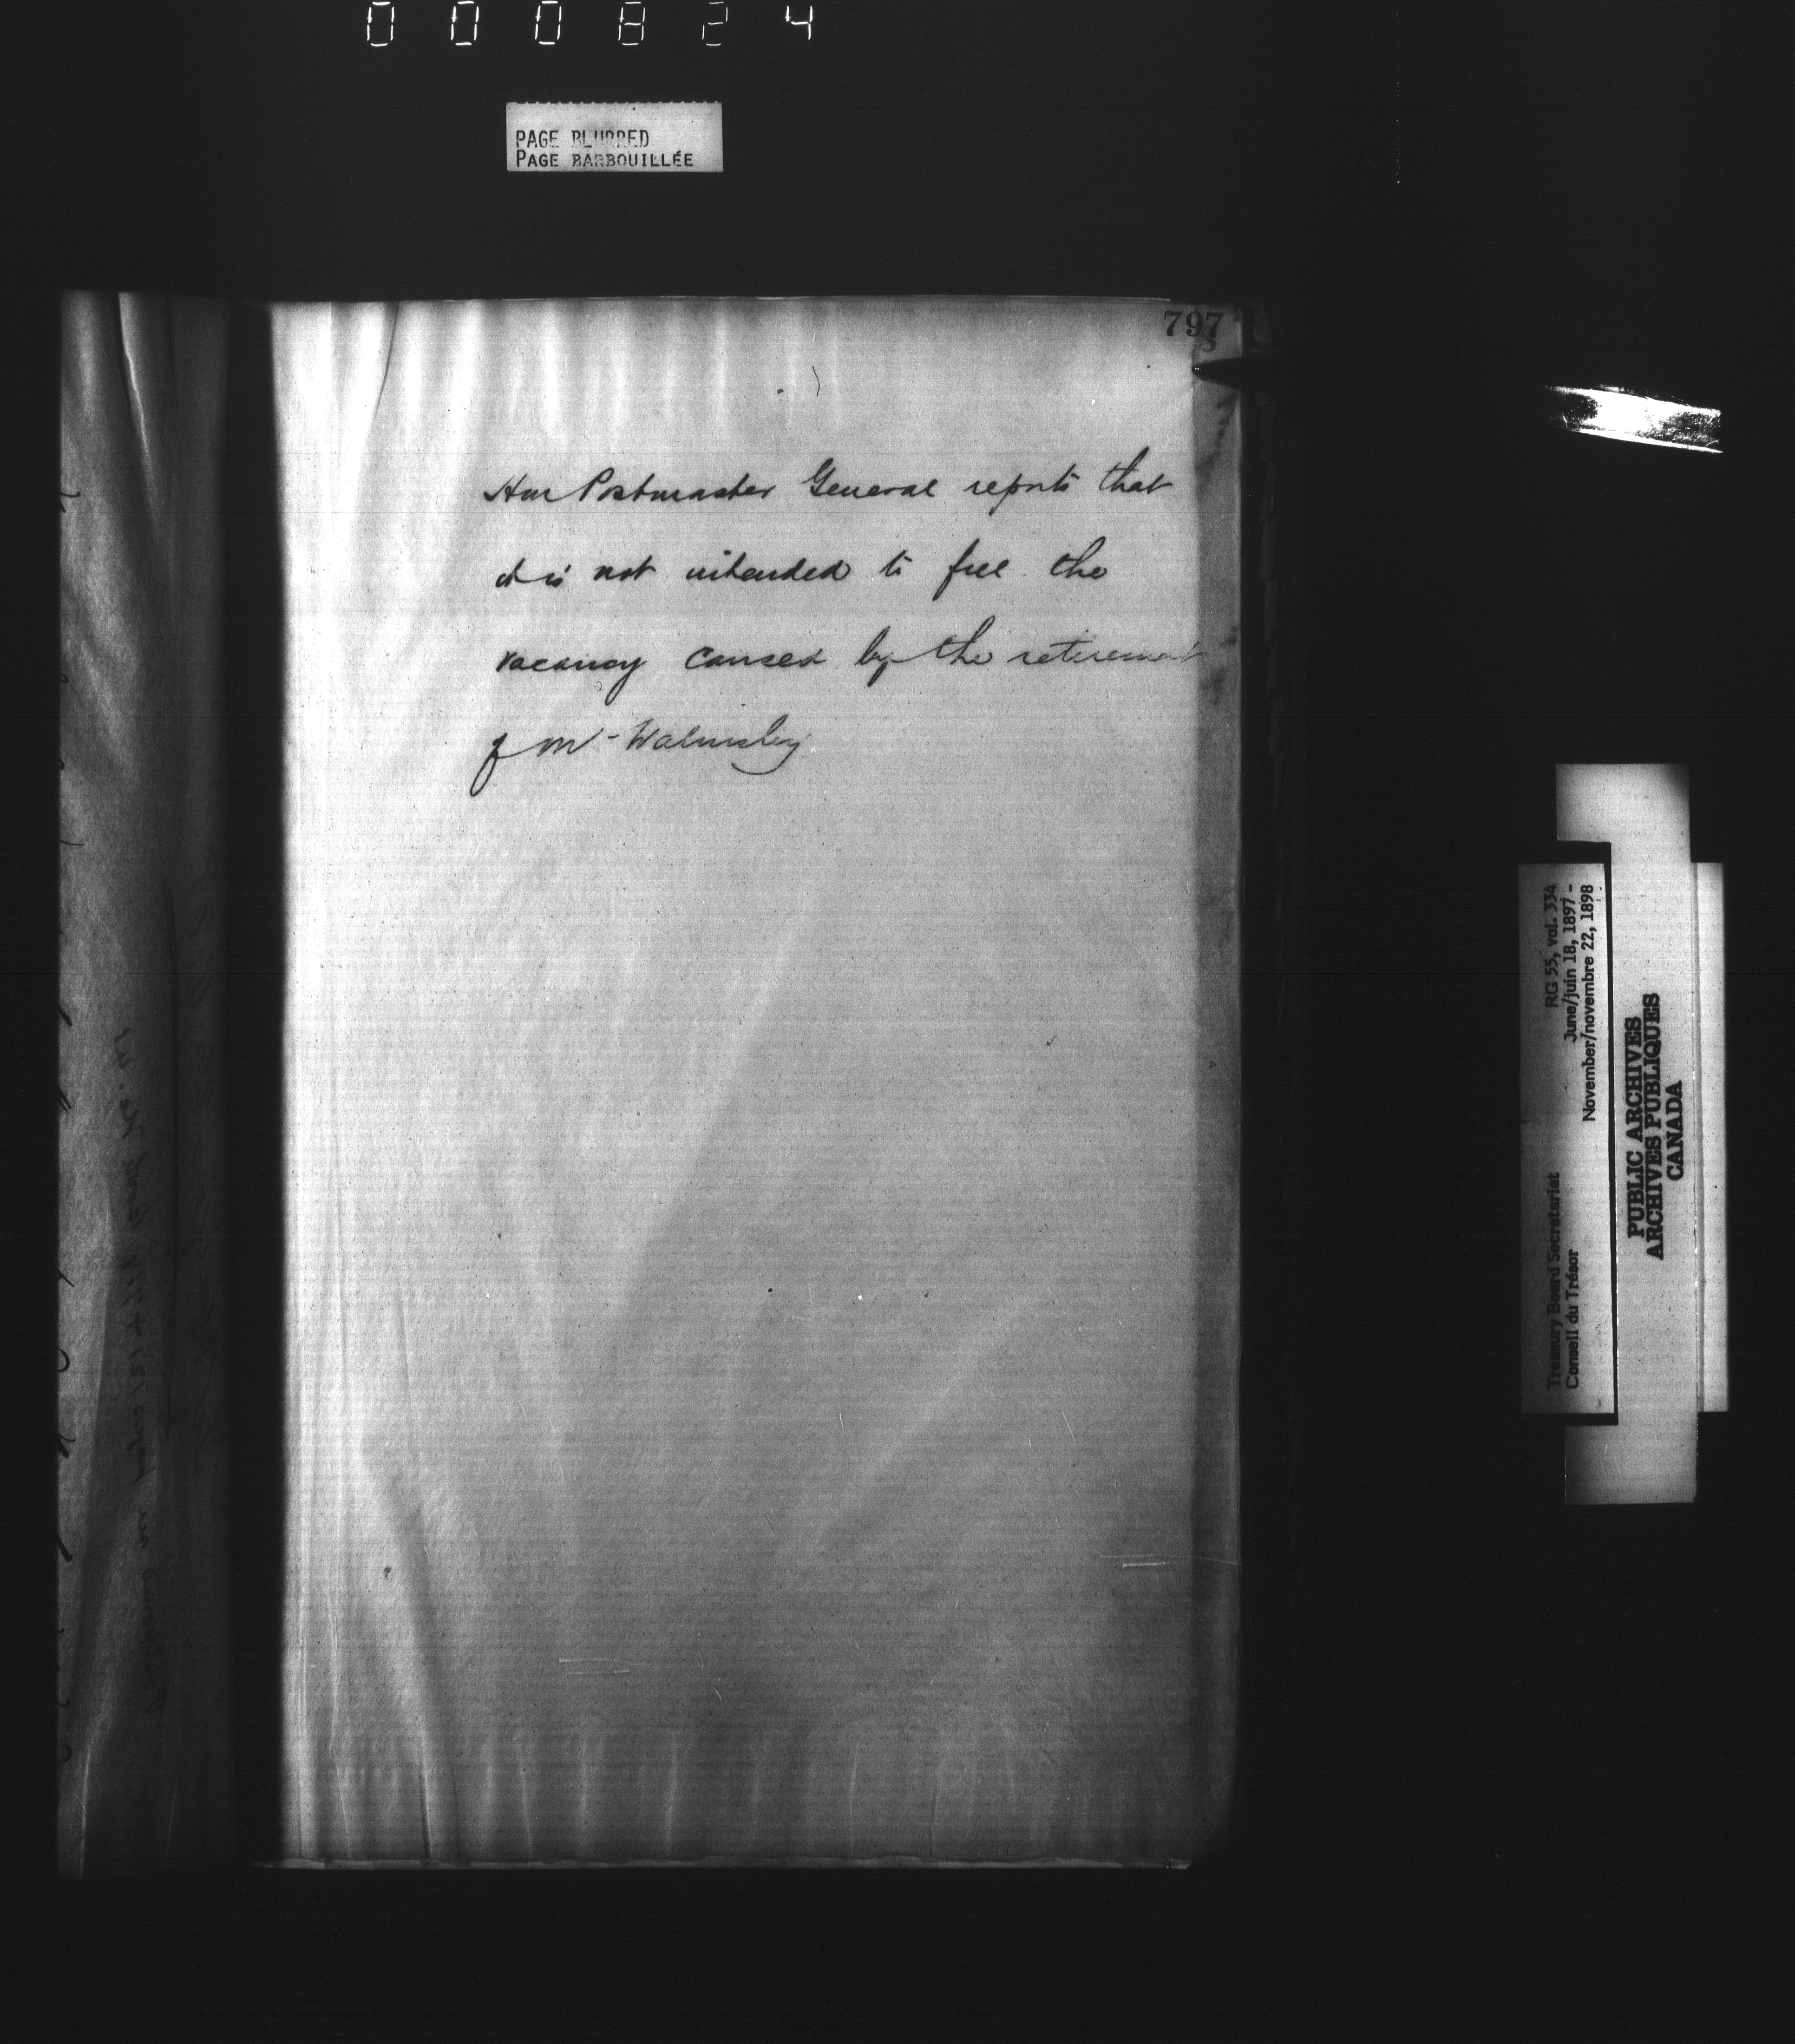 000824
PAGE BLURRED
PAGE BARBOUILLÉE
797
Hon Postmaster General reports that
it is not intended to fill the
vacancy caused by the retirement
of Mr Walmsley
RG 55, vol. 334
June/juin 18, 1897 -
November/novembre 22, 1898
Treasury Board Secretariat
Conseil du Trésor
PUBLIC ARCHIVES
ARCHIVES PUBLIQUES
CANADA